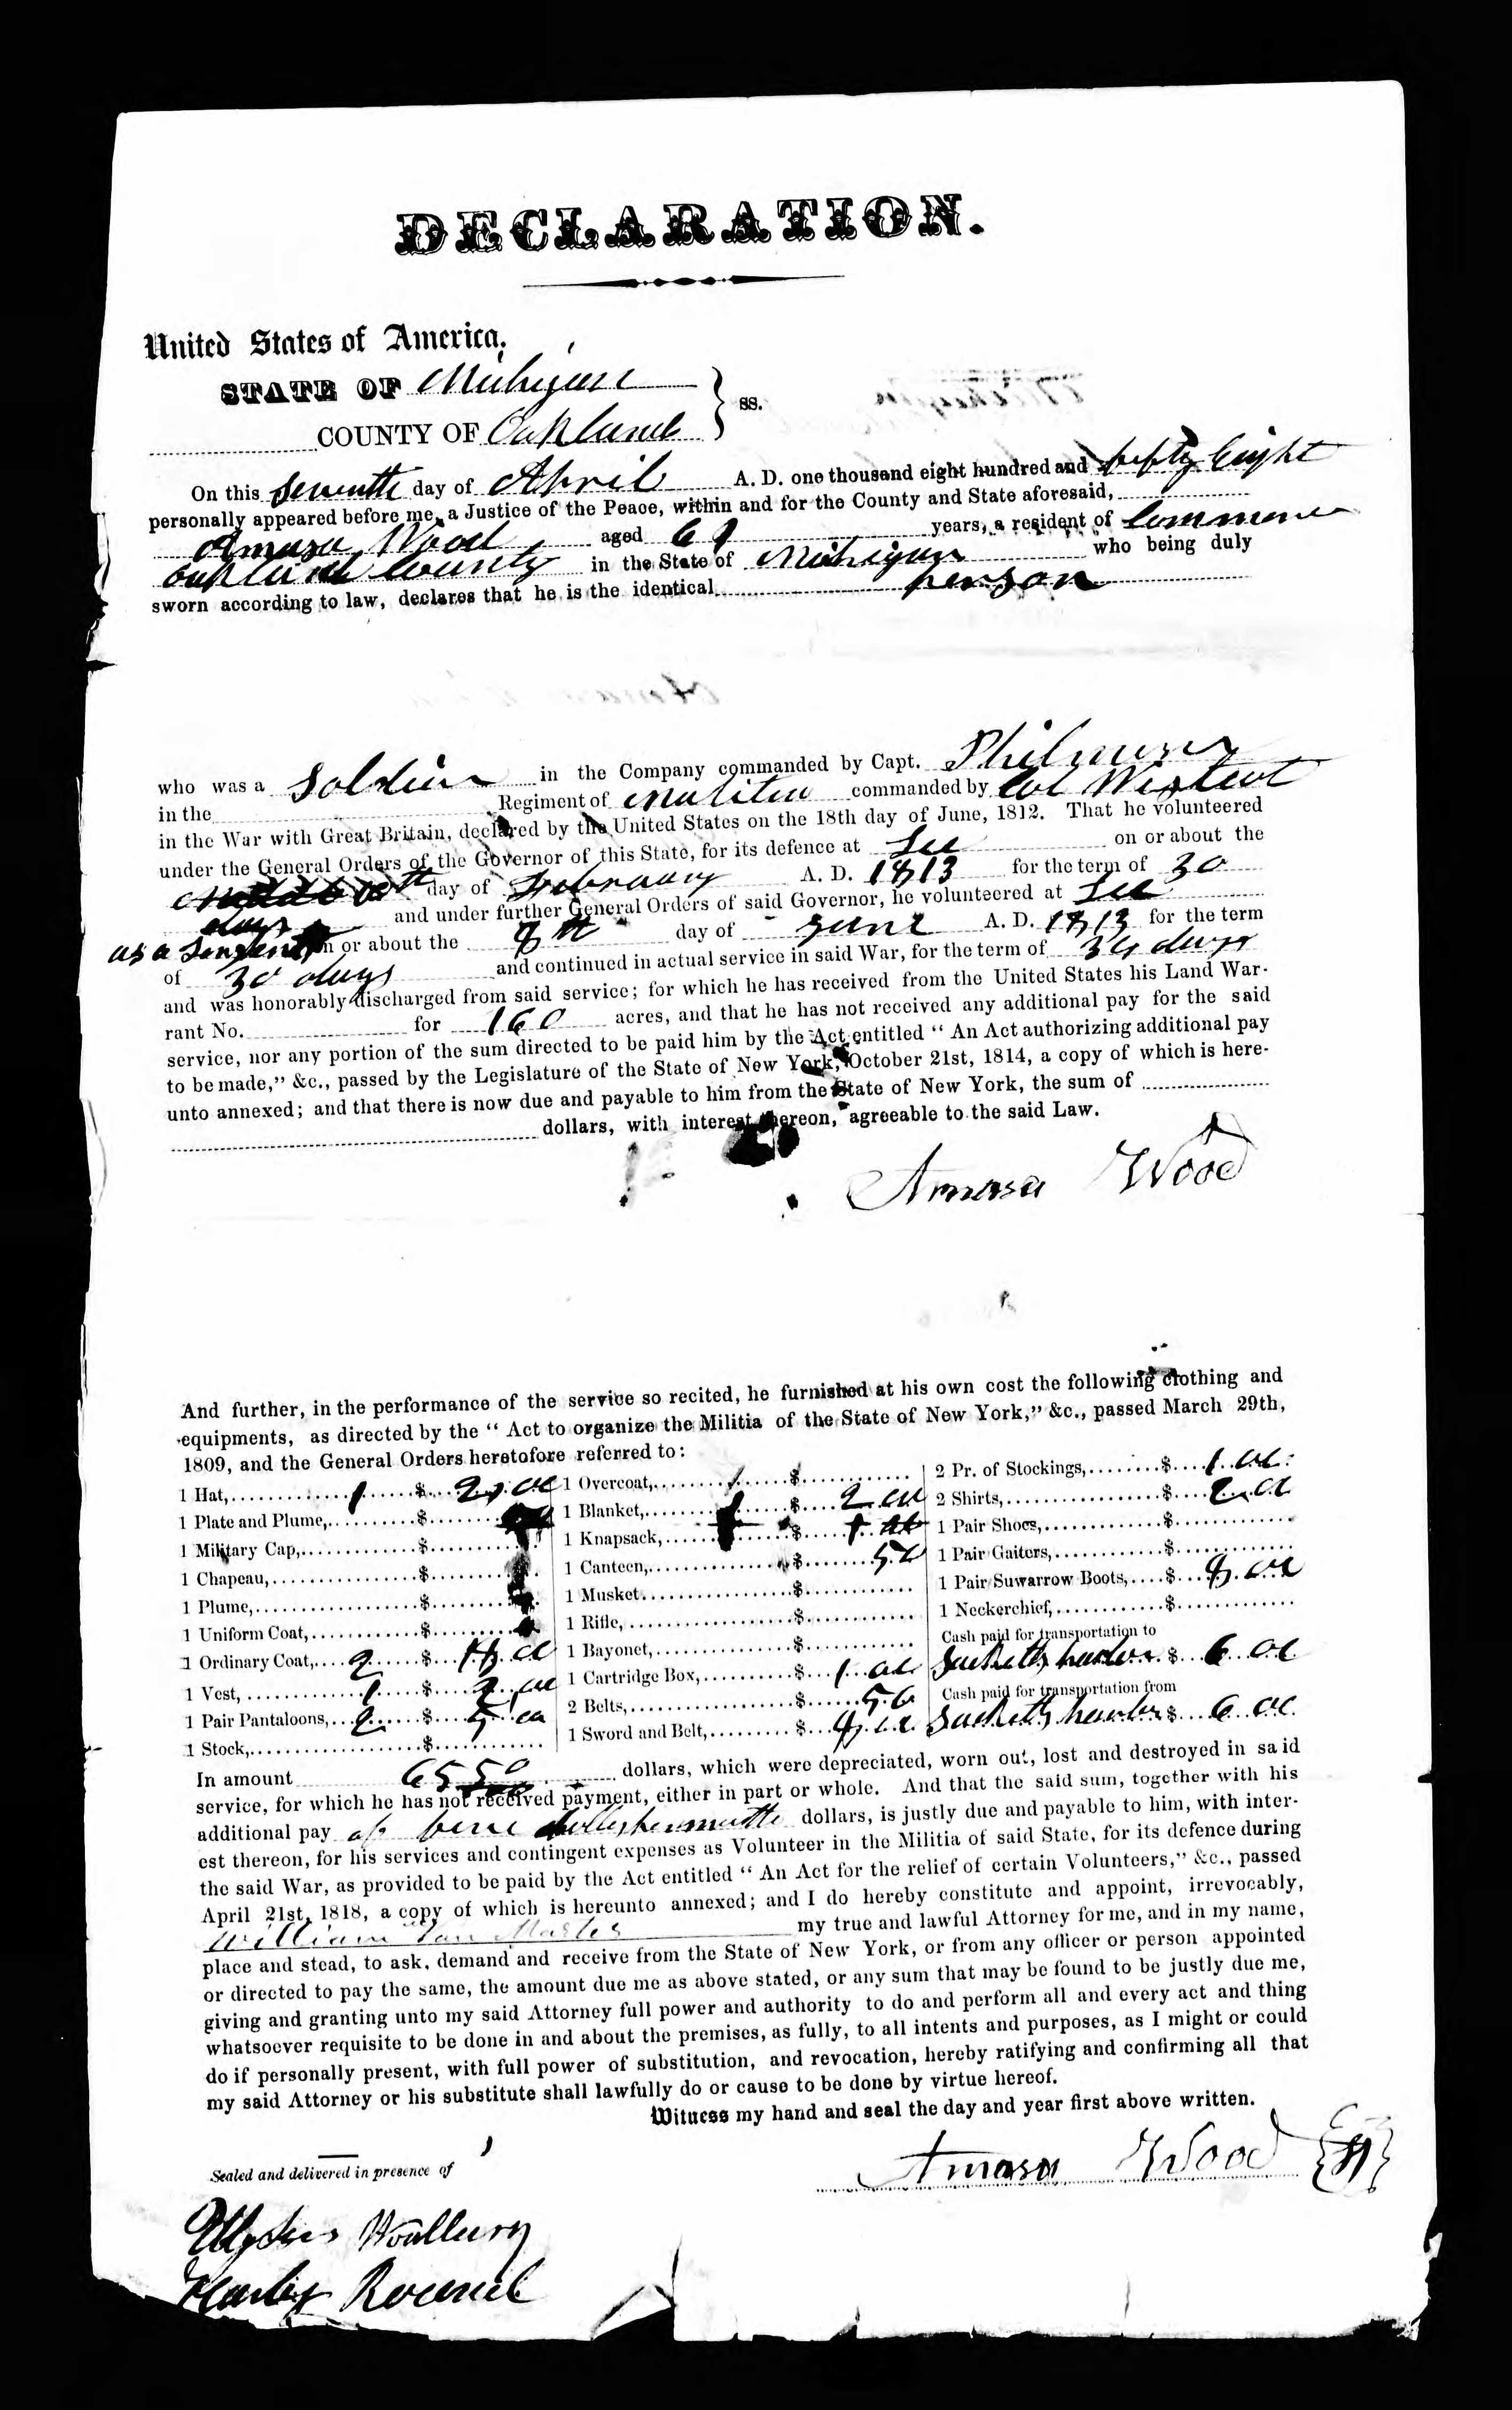 DECLARATION.
United States of America,
STATE OF Michigan
COUNTY OF Oakland } ss.
On this Seventh day of April A. D. one thousand eight hundred and fifty Eight
personally appeared before me, a Justice of the Peace, within and for the County and State aforesaid,
Amasa Wood aged years, a resident of Commerce
Oakland County in the State of Michigan who being duly
sworn according to law, declares that he is the identical person
who was a Soldier in the Company commanded by Capt.
in the Regiment of commanded by Col
in the War with Great Britain, declared by the United States on the 18th day of June, 1812. That he volunteered
under the General Orders of the Governor of this State, for its defence at Lee on or about the
day of February A. D. 1813 for the term of 30
days and under further General Orders of said Governor, he volunteered at Lee
as a on or about the 8th day of June A. D. 1813 for the term
of 30 days and continued in actual service in said War, for the term of 34 days
and was honorably discharged from said service; for which he has received from the United States his Land War-
rant No. for 160 acres, and that he has not received any additional pay for the said
service, nor any portion of the sum directed to be paid him by the Act entitled “ An Act authorizing additional pay
to be made,” &c., passed by the Legislature of the State of New York, October 21st, 1814, a copy of which is here-
unto annexed; and that there is now due and payable to him from the State of New York, the sum of
dollars, with interest thereon, agreeable to the said Law.
Amasa Wood
And further, in the performance of the service so recited, he furnished at his own cost the following clothing and
equipments, as directed by the “ Act to organize the Militia of the State of New York,” &c., passed March 29th,
1809, and the General Orders heretofore referred to:
1 Hat, 1 $
1 Plate and Plume, $
1 Military Cap, $
1 Chapeau, $
1 Plume, $
1 Uniform Coat, $
1 Ordinary Coat, 2 $
1 Vest, 1 $
1 Pair Pantaloons, 2 $
1 Stock, $
1 Overcoat, $
1 Blanket, 1 $ 2 00
1 Knapsack, $
1 Canteen, $ 50
1 Musket $
1 Rifle, $
1 Bayonet, $
1 Cartridge Box, $ 1 00
2 Belts, $ 50
1 Sword and Belt, $
2 Pr. of Stockings, $ 1 00
2 Shirts, $ 2 00
1 Pair Shoes, $
1 Pair Gaiters, $
1 Pair Suwarrow Boots, $ 8 00
1 Neckerchief, $
Cash paid for transportation to
Sacketts harbor $ 6 00
Cash paid for transportation from
Sacketts harbor $ 6 00
In amount 65 50 dollars, which were depreciated, worn out, lost and destroyed in said
service, for which he has not received payment, either in part or whole. And that the said sum, together with his
additional pay of dollars, is justly due and payable to him, with inter-
est thereon, for his services and contingent expenses as Volunteer in the Militia of said State, for its defence during
the said War, as provided to be paid by the Act entitled “ An Act for the relief of certain Volunteers,” &c., passed
April 21st, 1818, a copy of which is hereunto annexed; and I do hereby constitute and appoint, irrevocably,
William Van my true and lawful Attorney for me, and in my name,
place and stead, to ask, demand and receive from the State of New York, or from any officer or person appointed
or directed to pay the same, the amount due me as above stated, or any sum that may be found to be justly due me,
giving and granting unto my said Attorney full power and authority to do and perform all and every act and thing
whatsoever requisite to be done in and about the premises, as fully, to all intents and purposes, as I might or could
do if personally present, with full power of substitution, and revocation, hereby ratifying and confirming all that
my said Attorney or his substitute shall lawfully do or cause to be done by virtue hereof.
Witness my hand and seal the day and year first above written.
Sealed and delivered in presence of
Amasa Wood